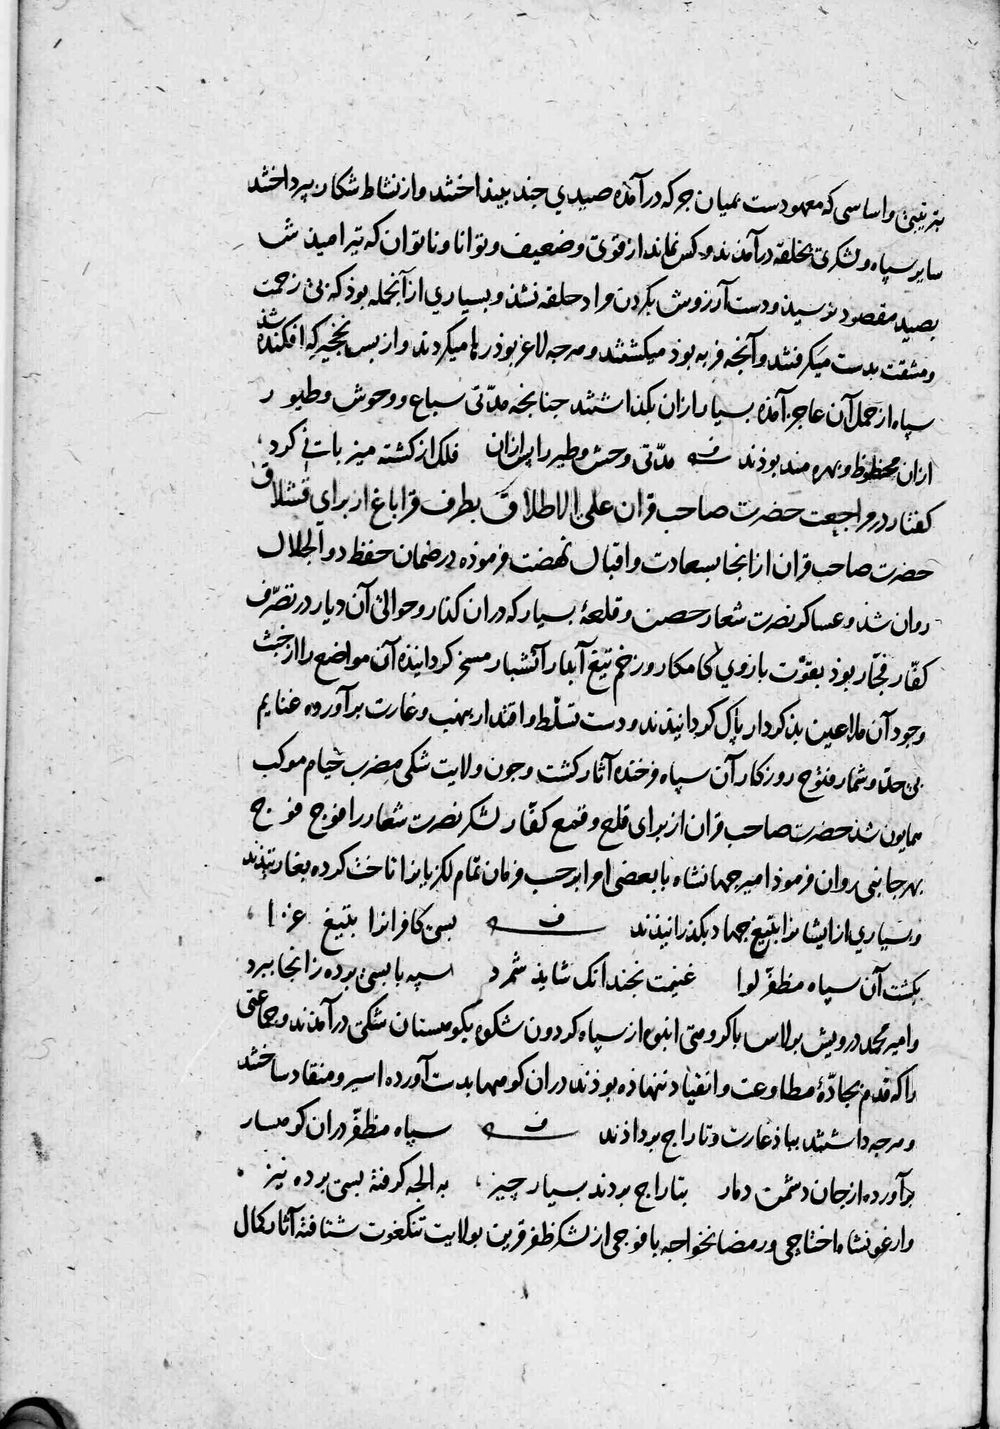 بترتیبی و اساسی که معهودست بمیان جرکه درآمده صیدی چند بینداختند و از نشاط شکار بپرداختند
سایر سپاه و لشکری بحلقه درآمدند و کس نماند از قوی و ضعیف و توانا و ناتوان که تیر امیدش
بصید مقصود نرسید و دست آرزوش بگردن مراد حلقه نشد و بسیاری از آنجمله بود که بی زحمت
و مشقت بدست میکرفتند و آنچه فربه بود میکشتند و هرچه لاغر بود رها میکردند و از بس نخجیر که افکنده شد
سپاه از حمل آن عاجز آمده بسیار ازان بکذاشتند چنانچه مدتی سباع و وحوش و طیور
ازان محظوظ و بهره مند بودند مدتی وحش و طیر را پس ازان فلک از کشته میزبانی کرد
کفتار در مراجعت حضرت صاحب قران علی الاطلاق بطرف قراباغ از برای قشلاق
حضرت صاحب قران از انجا بسعادت و اقبال نهضت فرموده در ضمان حفظ ذو الجلال
روان شد و عساکر نصرت شعار حصن و قلعهٔ بسیار که دران کنار و حوالی آن دیار در تصرف
کفار فجار بود بقوت بازوی کامکار و زخم تیغ آبدار آتشبار مسخر کردانیده آن مواضع را از خبث
وجود آن ملاعین بدکردار پاک کردانیدند و دست تسلط و اقتدار بنهب و غارت برآورده غنایم
بی حد و شمار فتوح روزکار آن سپاه فرخنده آثار کشت و چون ولایت شکی مضرب خیام موکب
همایون شد حضرت صاحب قران از برای قلع و قمع کفار لشکر نصرت شعار را فوج فوج
بهر جانبی روان فرمود امیر جهانشاه با بعضی امرا بر حسب فرمان تمام لکزیانرا تاخت کرده بغارتیدند
و بسیاری از ایشانرا بتیغ جهاد بکذرانیدند بسی کافرانرا بتیغ غزا
بکشت آن سپاه مظفر لوا غنیمت نچندانک شاید شمرد سپه با بسی برده زانجا ببرد
و امیر محمد درویش برلاس با کروهی انبوه از سپاه کردون شکوه بکوهستان شکی درآمدند و جماعتی
را که قدم بجادهٔ مطاوعت و انقیاد ننهاده بودند دران کوهها بدست آورده اسیر و منقاد ساختند
و هرچه داشتند بباد غارت و تاراج بردادند سپاه مظفر دران کوهسار
برآورده از جان دشمن دمار بتاراج بردند بسیار چیز به الجه کرفته بسی برده نیز
و ارغونشاه اختاجی و رمضانخواجه با فوجی از لشکر ظفرقرین بولایت تنکغوت شتافته آثار کمال